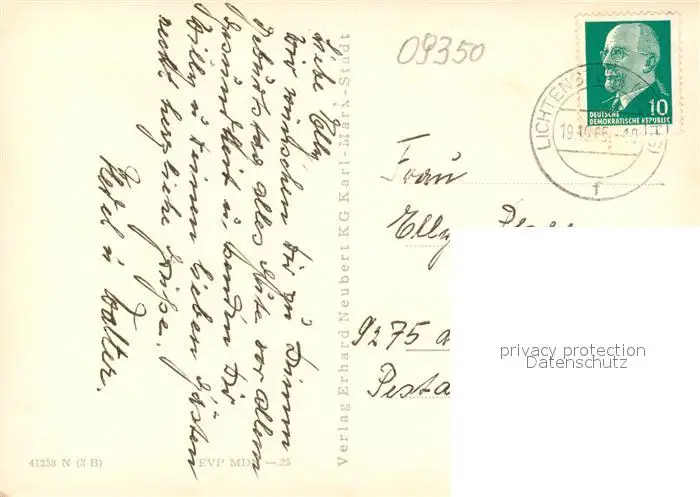 Liebe Elly
Wir wünschen Dir zu Deinem
Geburtstag alles Gute vor allem
Gesundheit u. senden Dir
Willy u Deinen lieben Gästen
recht herzliche Grüße.
u Walter.
Verlag Erhard Neubert KG Karl-Marx-Stadt
41238 N (3 B)
EVP MDN —.25
09350
10
DEUTSCHE
DEMOKRATISCHE REPUBLIK
LICHTENS
19.10.66
f
Frau
Elly
9275
Pesta
privacy protection
Datenschutz